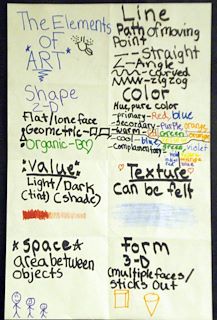 The Elements
OF
ART
Line
Path of moving
Point
Straight
Angle
Curved
Zig Zag
Shape
2-D
Flat/one face
Geometric-
Organic-B
Color
Hue, pure color
-primary-Red, blue
-Secondary-Purple, orange
-warm-Red, orange
-cool-blue, green, violet
-Complementary
Value
Light/Dark
(tint) (shade)
Texture
can be felt
*Space*
area between
objects
form
3-D
(multiple faces/
sticks out